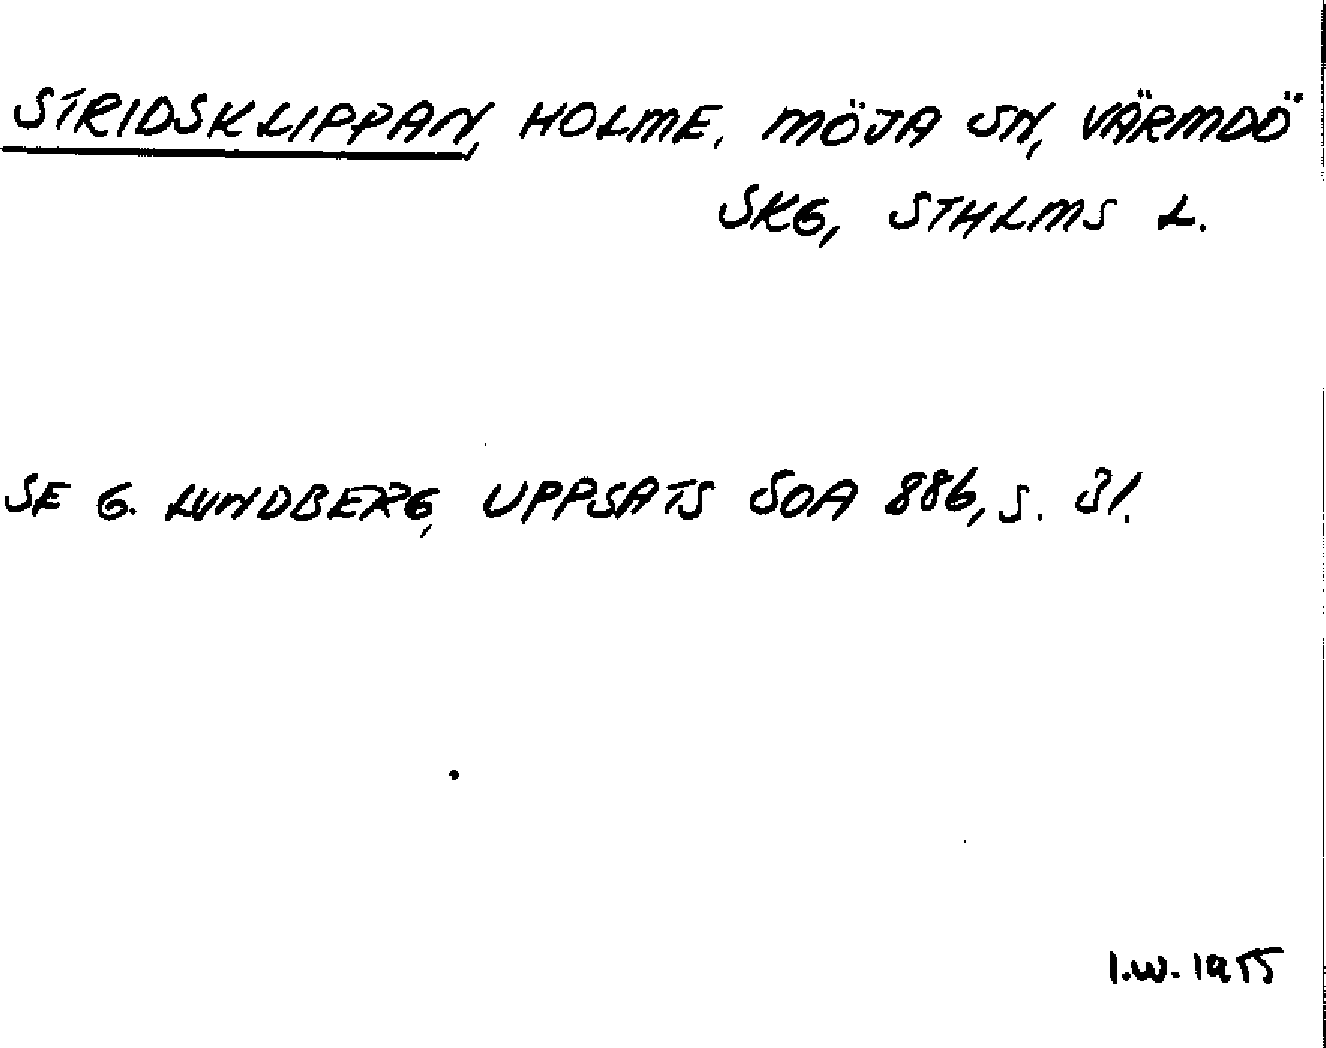 STRIDSKLIPPAN, HOLME, MÖJA SN, VÄRMDÖ
SKG, STHLMS L.
SE G. LUNDBERG, UPPSATS SOA 886, S. 31.
I.W. 1955